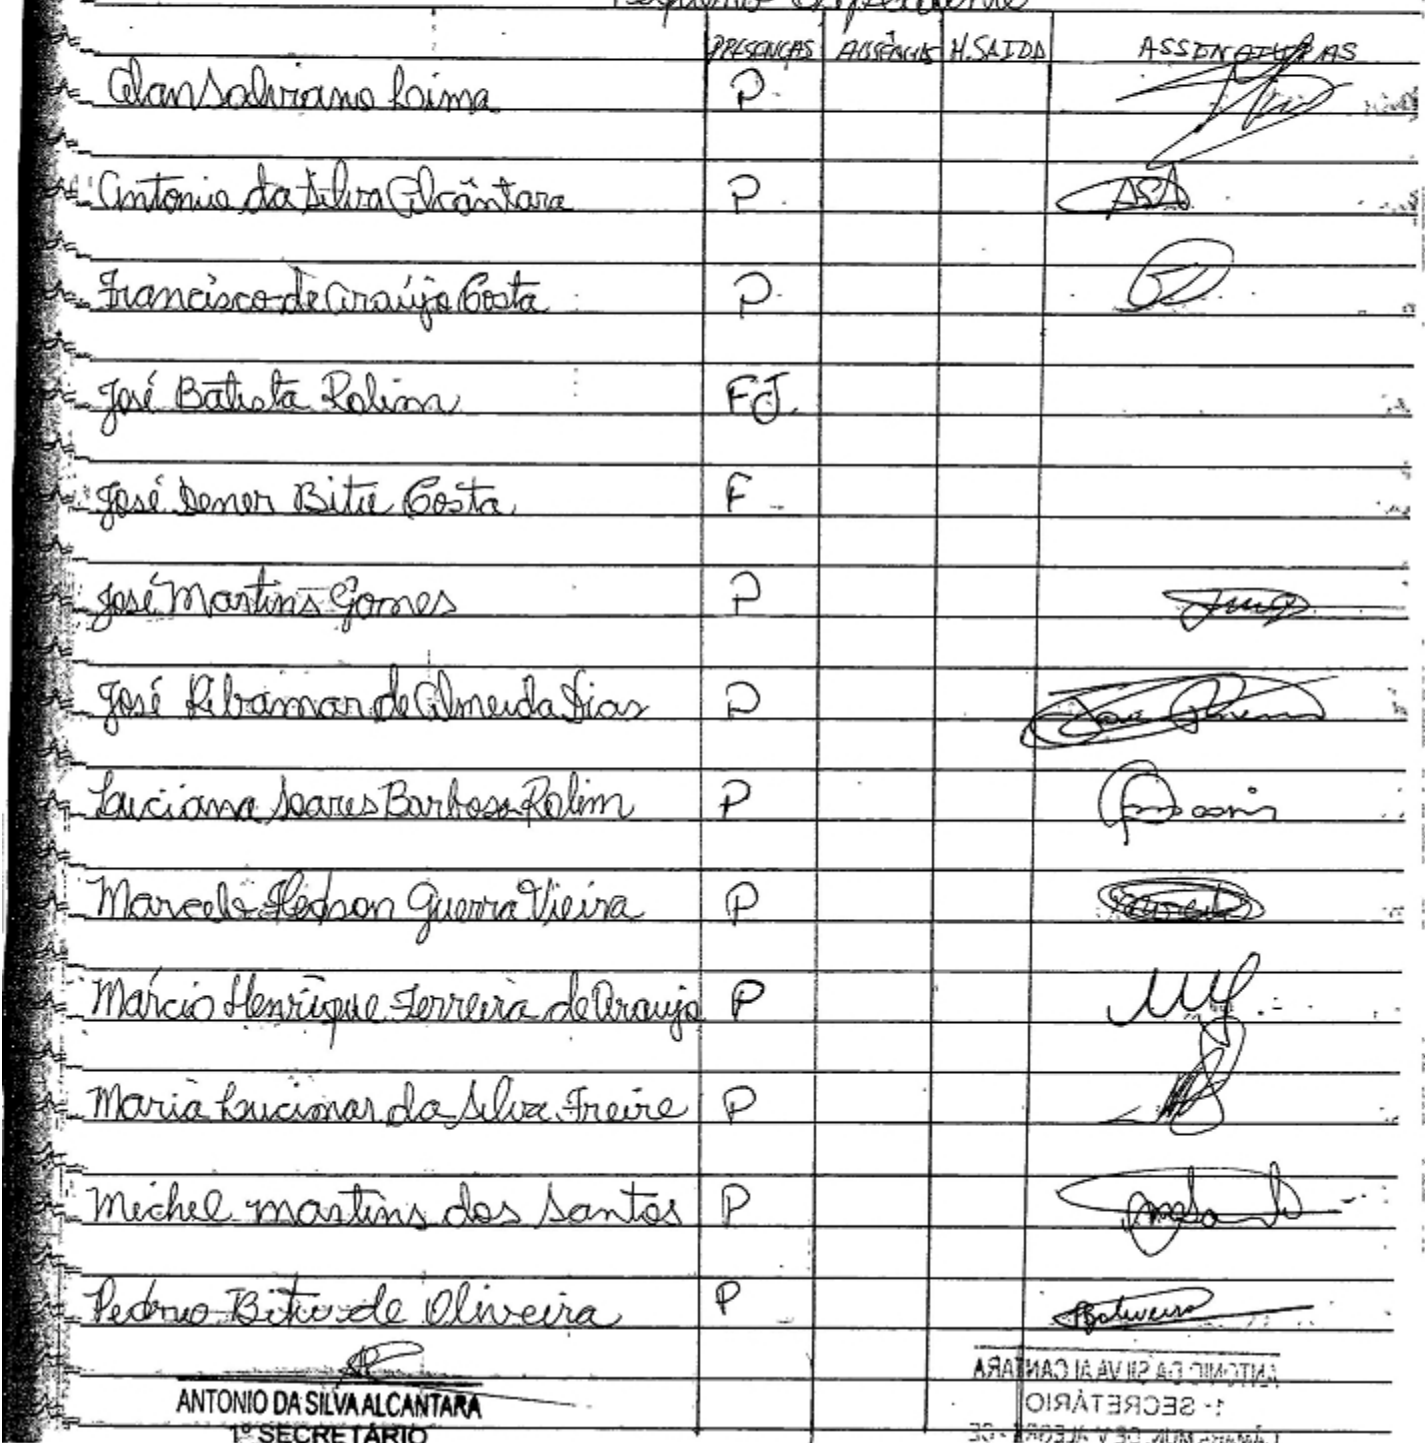 PRESENÇAS AUSÊNCIAS H.SAIDA ASSINATURAS
Alan Salviano Lima P
Antonio da Silva Alcântara P ASA
Francisco de Araújo Costa P
José Batista Rolim FJ
José Dener Bitu Costa F
José Martins Gomes P
José Ribamar de Almeida Dias P
Luciana Soares Barbosa Rolim P
Marcelo Hedson Guerra Vieira P
Márcio Henrique Ferreira de Araujo P
Maria Lucimar da Silva Freire P
Michel Martins dos Santos P
Pedro Bitu de Oliveira P
ANTONIO DA SILVA ALCANTARA
1º SECRETÁRIO
ANTONIO DA SILVA ALCANTARA
1º SECRETÁRIO